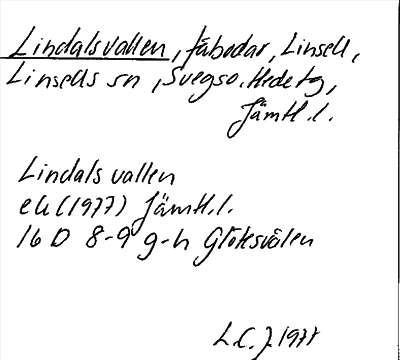 Lindalsvallen, fäbodar, Linsell,
Linsells sn, Svegs o. Hede tg,
Jämtl. l.
Lindalsvallen
ek (1977) Jämtl. l.
16 D 8-9 g-h Glötesvålen
L.C.J. 1977